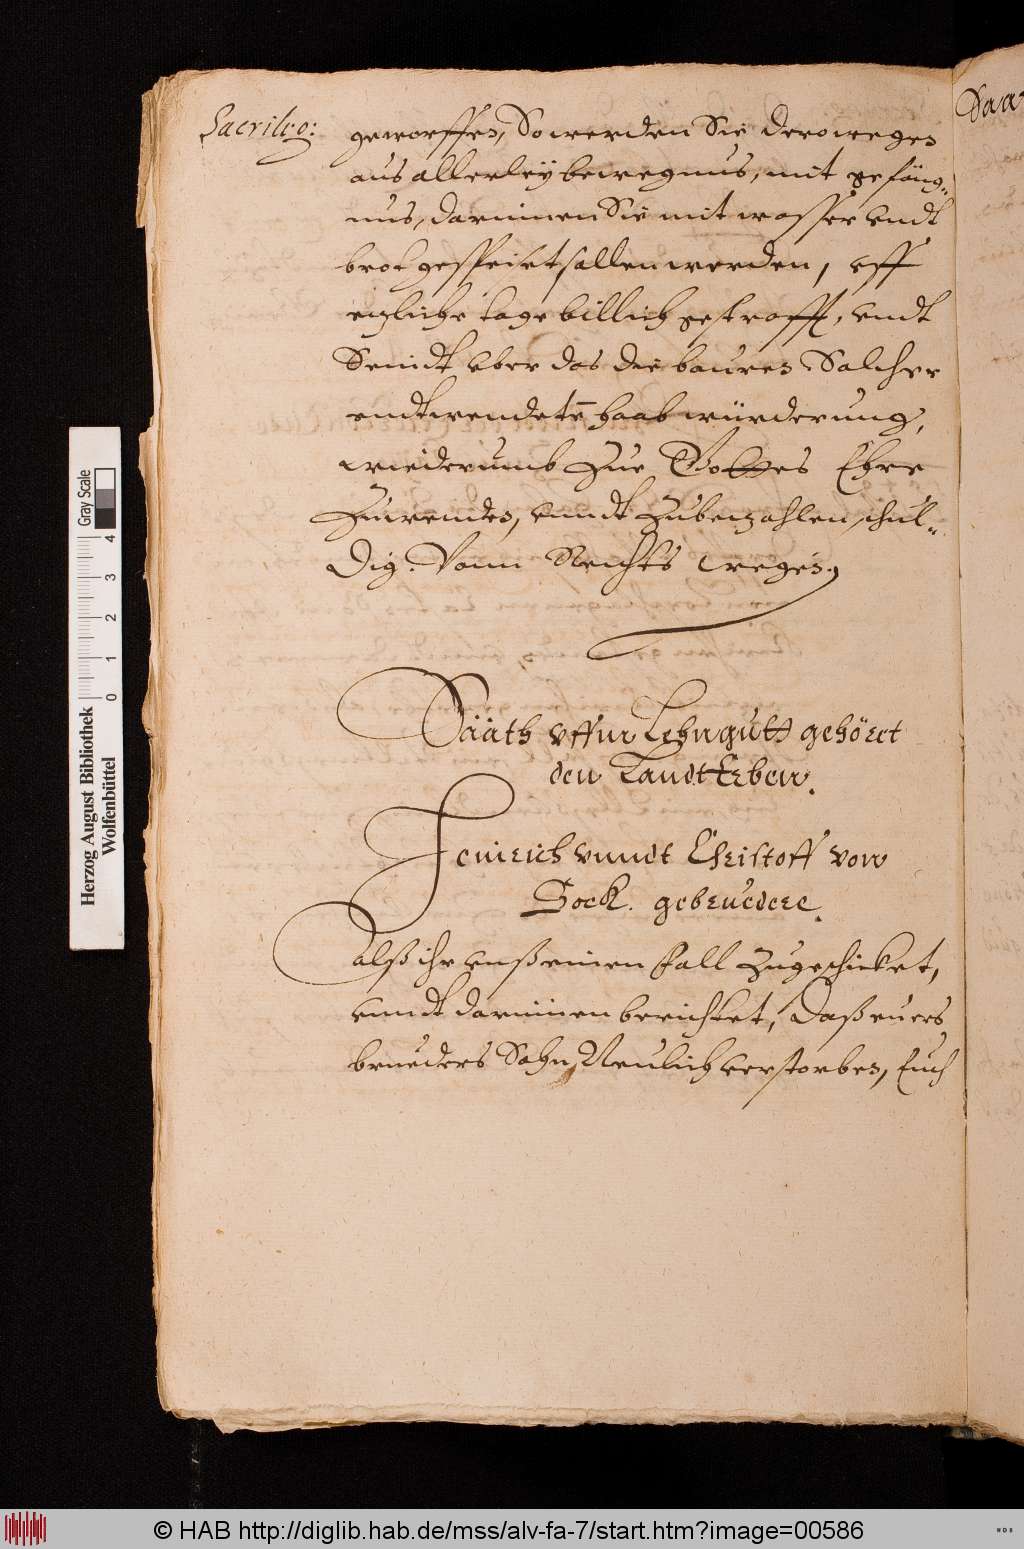 Sacrileg:
geworffen, So werden Sie derowegen
aus allerley bewegnus, mit gefäng-
nus, darinnen Sie mit wasser vndt
brot gespeiset sollen werden, vff
etzliche tage billich gestrafft, vndt
Seindt aber das die bauren Solcher
endtwendete haab würderung,
wiederumb zue Gottes Ehre
Zuwenden, vnndt Zubezahlen schul-
dig. Vonn Rechts wegen.
Sääth vffm Lehngutt gehöret
den Landt Erben.
Heinrich vnndt Christoff von
Bock. gebruedere.
alß ihr vnß einen Fall zugeschicket,
vnndt darinnen berichtet, Daß euers
brueders Sohn Neulich verstorben, Euch
Saa
Herzog August Bibliothek
Wolfenbüttel
0 1 2 3 4
Gray Scale
© HAB http://diglib.hab.de/mss/alv-fa-7/start.htm?image=00586